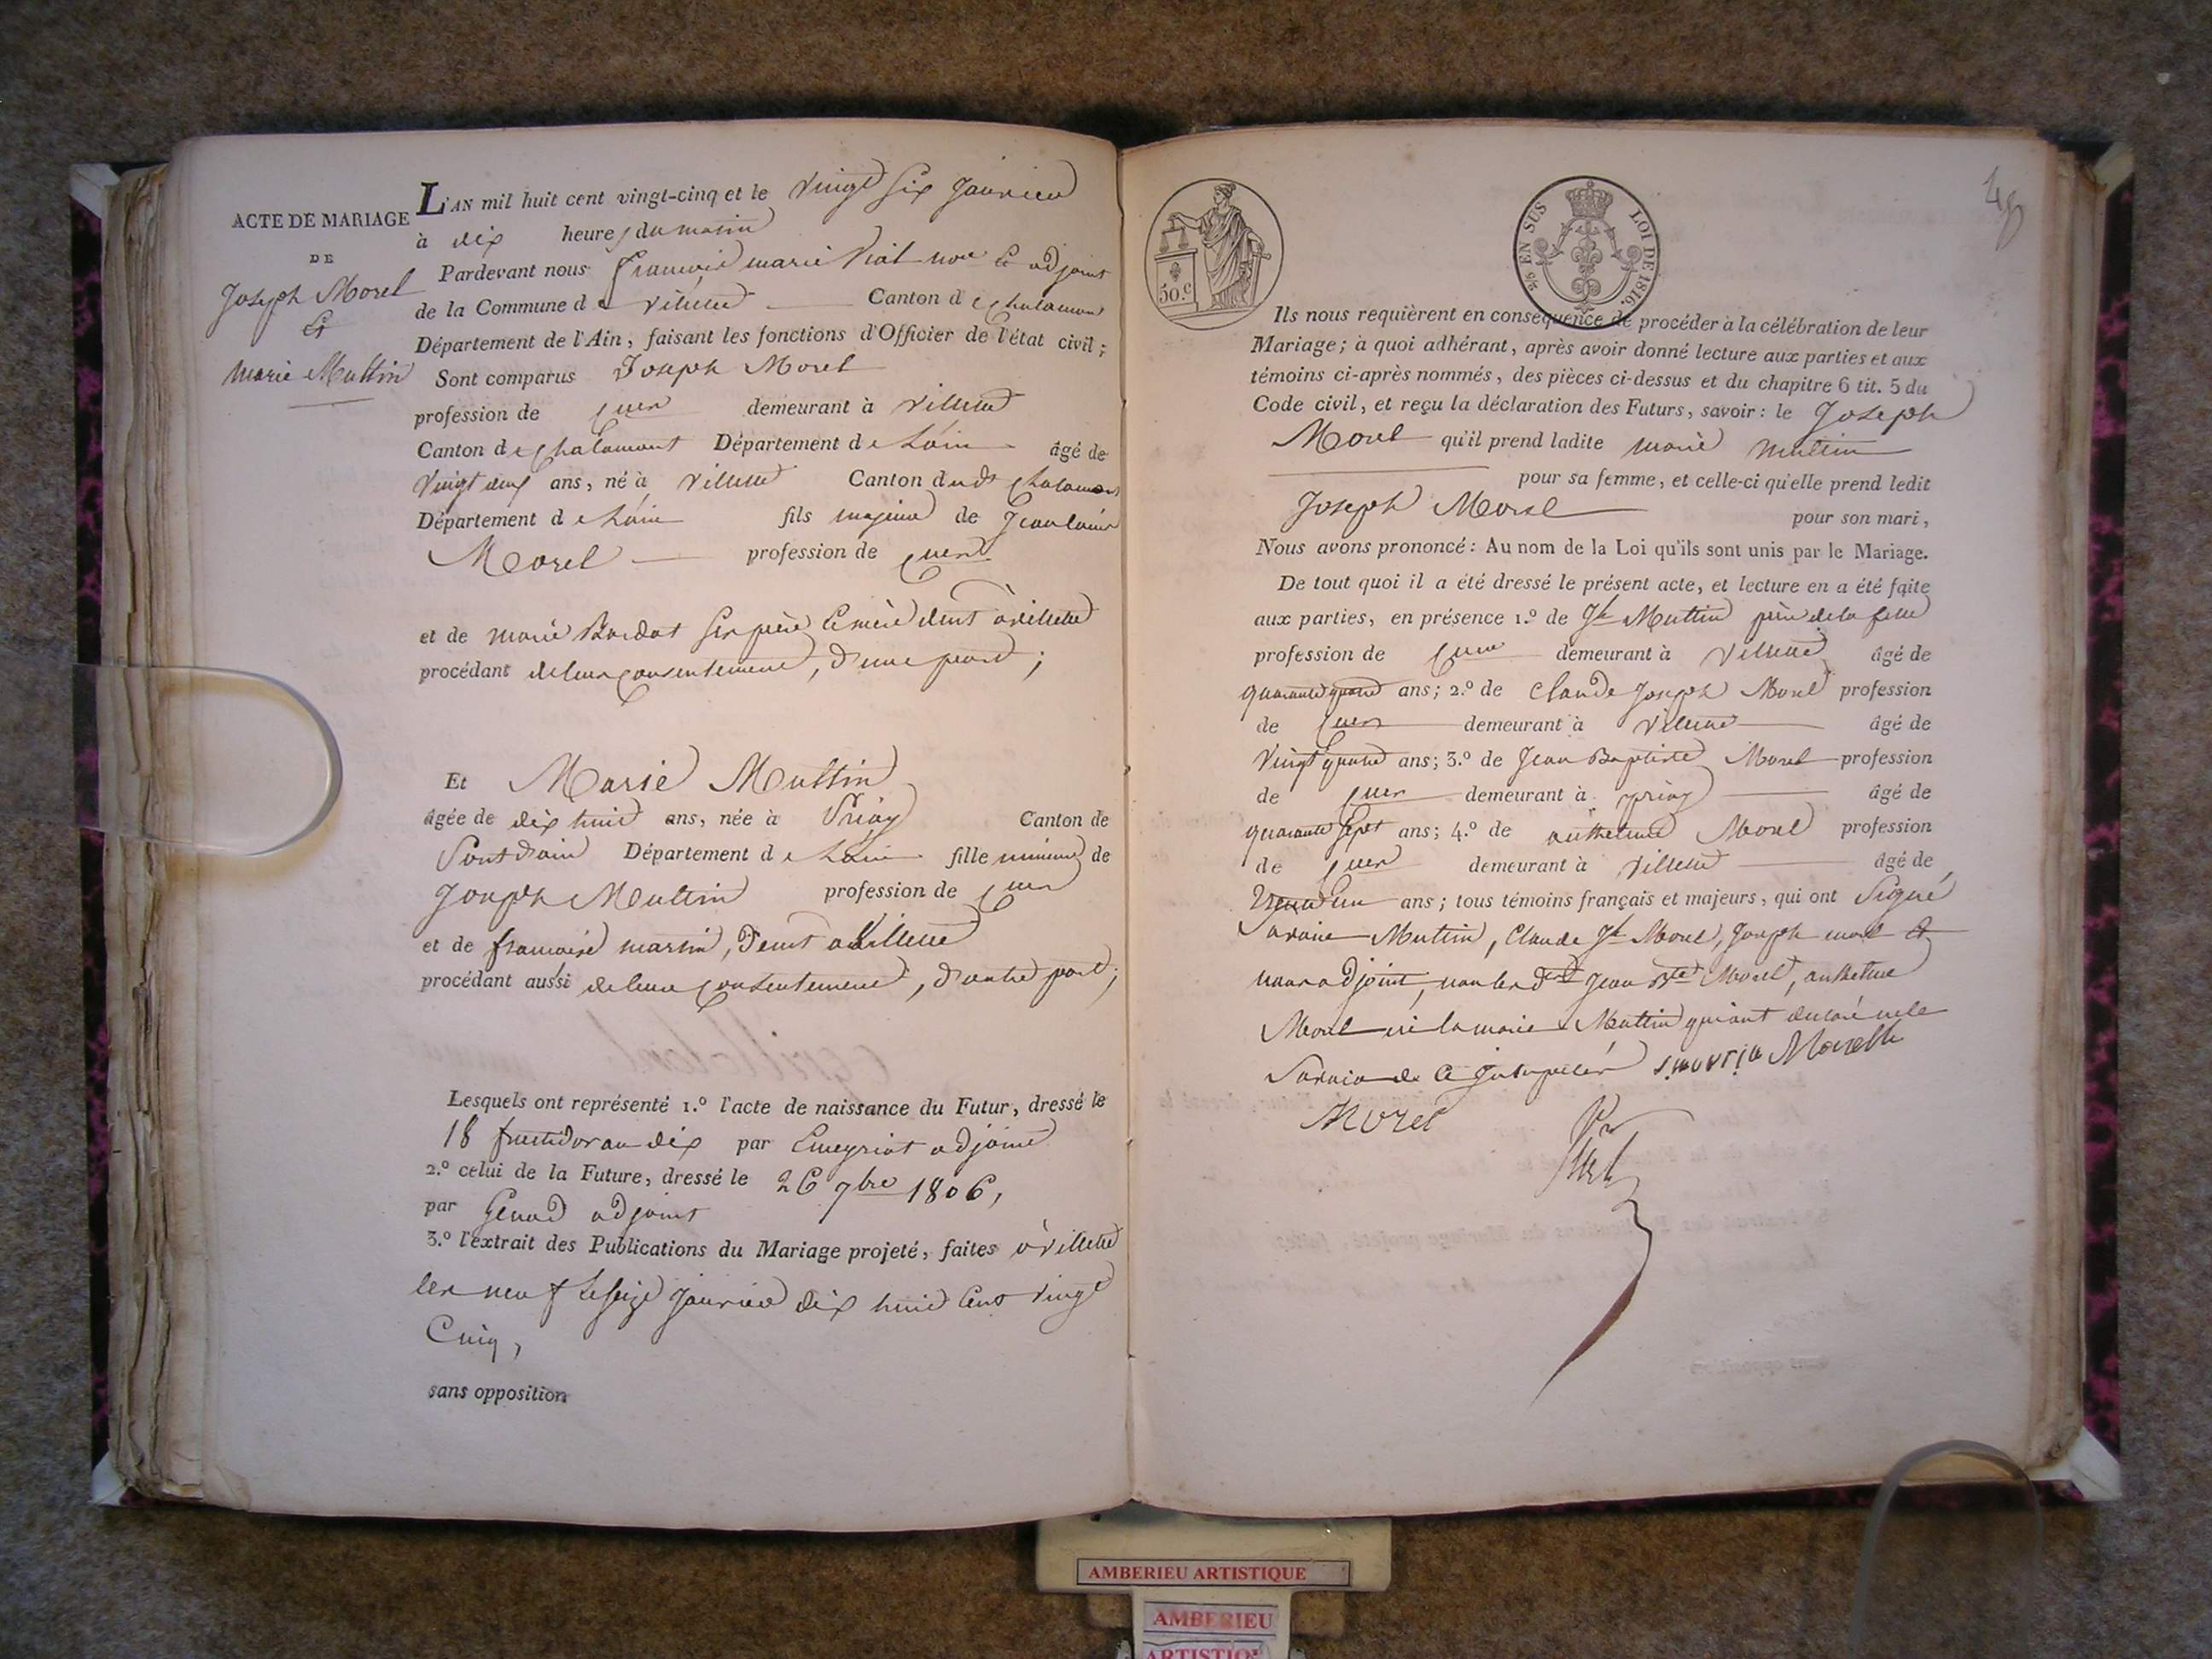 ACTE DE MARIAGE
DE
Joseph Morel
Et
Marie Muttin
L'AN mil huit cent vingt-cinq et le vingt six Janvier
à dix heures du matin
Pardevant nous françois marie Viot adjoint
de la Commune de villette Canton de chalamont
Département de l'Ain, faisant les fonctions d'Officier de l'état civil;
Sont comparus Joseph Morel
profession de cuer demeurant à villette
Canton de chalamont Département de L'ain âgé de
vingt deux ans, né à villette Canton dudt chalamont
Département de L'ain fils majeur de
Morel profession de cuer
et de marie Bordat ses père et mère dmts à villette
procédant de leur consentement, d'une part;
Et Marie Muttin
âgée de dix huit ans, née à Priay Canton de
Pontdain Département de L'ain fille mineure de
Joseph Muttin profession de cuer
et de françoise martin, demts a Villette
procédant aussi de leur consentement, d'autre part;
Lesquels ont représenté 1.º l'acte de naissance du Futur, dressé le
18 fructidor an dix par adjoint
2.º celui de la Future, dressé le 26 7bre 1806,
par Genod adjoint
3.º l'extrait des Publications du Mariage projeté, faites à villette
les neuf et seize Janvier dix huit cent vingt
Cinq,
sans opposition
48
50.c
2/10 EN SUS
LOI DE 1816.
Ils nous requièrent en conséquence de procéder à la célébration de leur
Mariage; à quoi adhérant, après avoir donné lecture aux parties et aux
témoins ci-après nommés, des pièces ci-dessus et du chapitre 6 tit. 5 du
Code civil, et reçu la déclaration des Futurs, savoir: le Joseph
Morel qu'il prend ladite marie muttin
pour sa femme, et celle-ci qu'elle prend ledit
Joseph Morel pour son mari,
Nous avons prononcé: Au nom de la Loi qu'ils sont unis par le Mariage.
De tout quoi il a été dressé le présent acte, et lecture en a été faite
aux parties, en présence 1.º de Jh Muttin père de la fille
profession de cuer demeurant à villette âgé de
quarante quatre ans; 2.º de Claude Joseph Morel profession
de cuer demeurant à villette âgé de
vingt quatre ans; 3.º de Jean Baptiste Morel profession
de cuer demeurant à priay âgé de
quarante sept ans; 4.º de anthelme Morel profession
de cuer demeurant à villette âgé de
trente un ans; tous témoins français et majeurs, qui ont Signé
Savoir Muttin, Claude Jh Morel, Joseph morel et
nous adjoint, non les dts Jean Bte Morel, anthelme
Morel ni la marie Muttin qui ont déclaré ne le
Savoir de ce Interpellés Morelle
Morel